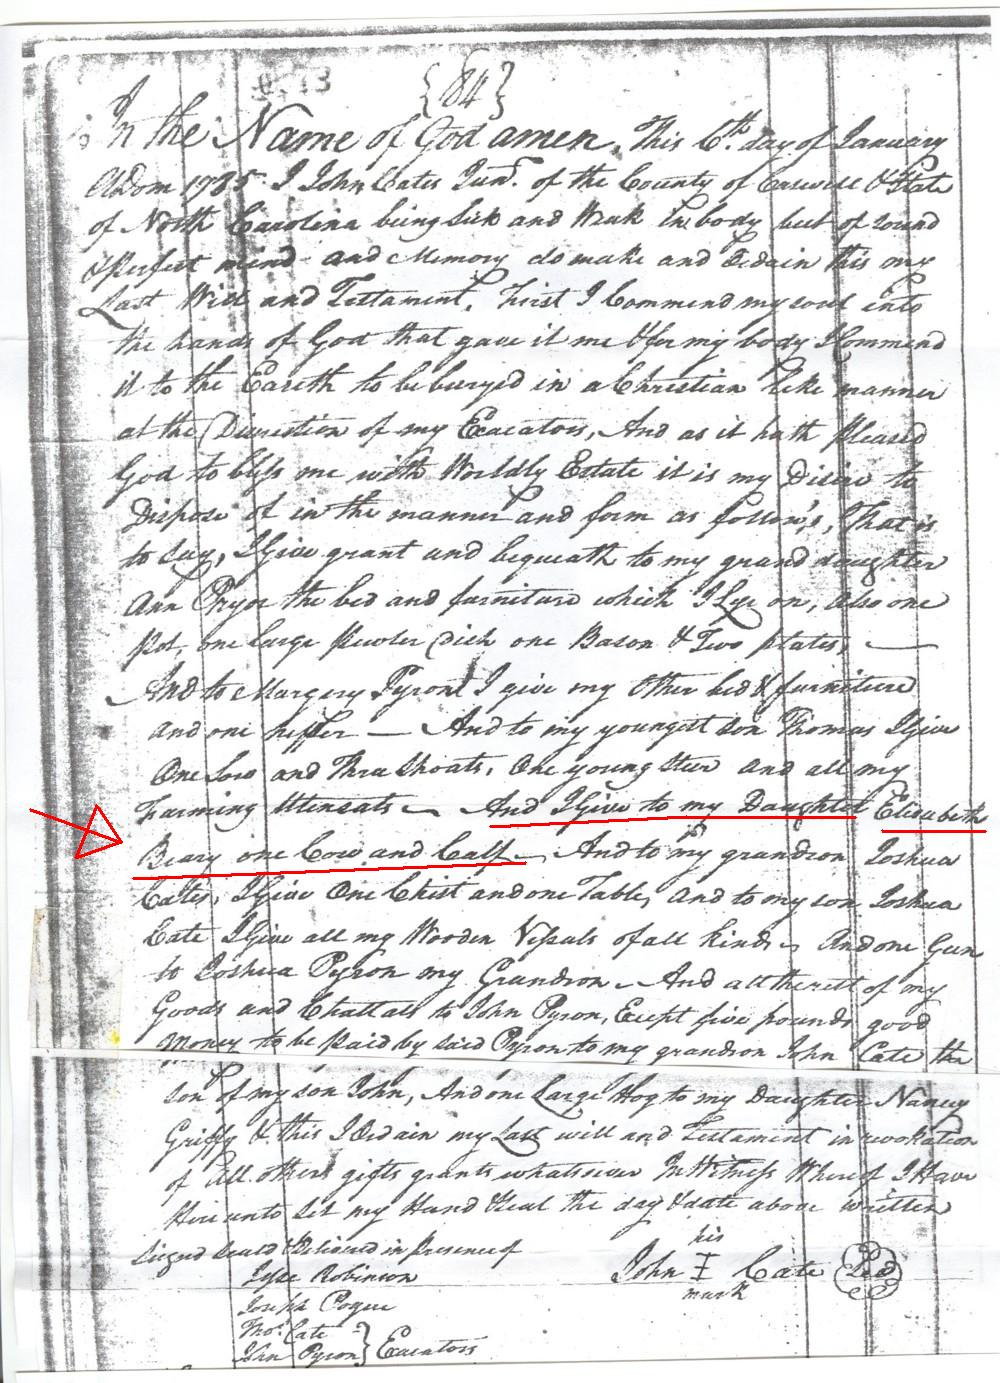 {84}
In the Name of God amen, This 6th. day of January
ADom 1785 I John Cates Junr. of the County of Caswell & State
of North Carolina being Sick and Weak In body but of sound
& Perfect mind and Memory do make and Ordain this my
Last Will and Testtament, First I Commend my soul into
the hands of God that gave it me & for my body I Commend
it to the Eareth to be buryed in a Christian like manner
at the Discretion of my Executors, And as it hath Pleased
God to bless me with Worldly Estate it is my Disire to
Dispose of in the manner and form as follows, That is
to say, I Give grant and bequeath to my grand daughter
Ann Pryor the bed and furniture which I Lye on, also one
Pot, one large Pewter Dish one Bason & Two plates, —
And to Margery Pyron I give my other bed & furniture
and one heffer — And to my youngest son Thomas I Give
One Sow and Three Shoats, One young Steer and all my
Farming Utensals — And I Give to my Daughter Elisabeth
Beary one Cow and Calf — And to my grandson Joshua
Cates, I Give One Chist and one Table, and to my son Joshua
Cate I Give all my Wooden Vessals of all kinds — And one Gun
to Joshua Pyron my Grandson — And all the rest of my
Goods and Chattals to John Pyron, Except five pounds good
Money to be Paid by said Pyron to my grandson John Cate the
son of my son John, And one Large Hog to my Daughter Nancy
Griffy & this I Ordain my Last will and Testament in revokation
of all others gifts grants whatsoever In Witness Whereof I Have
Hereunto Set my Hand & Seal the day & date above written
his
Signed Seald & Delivered in Presence of
John I Cate Seal
mark
Jesse Robinson
Joseph Pogue
Thos. Cate
John Pyron } Executors